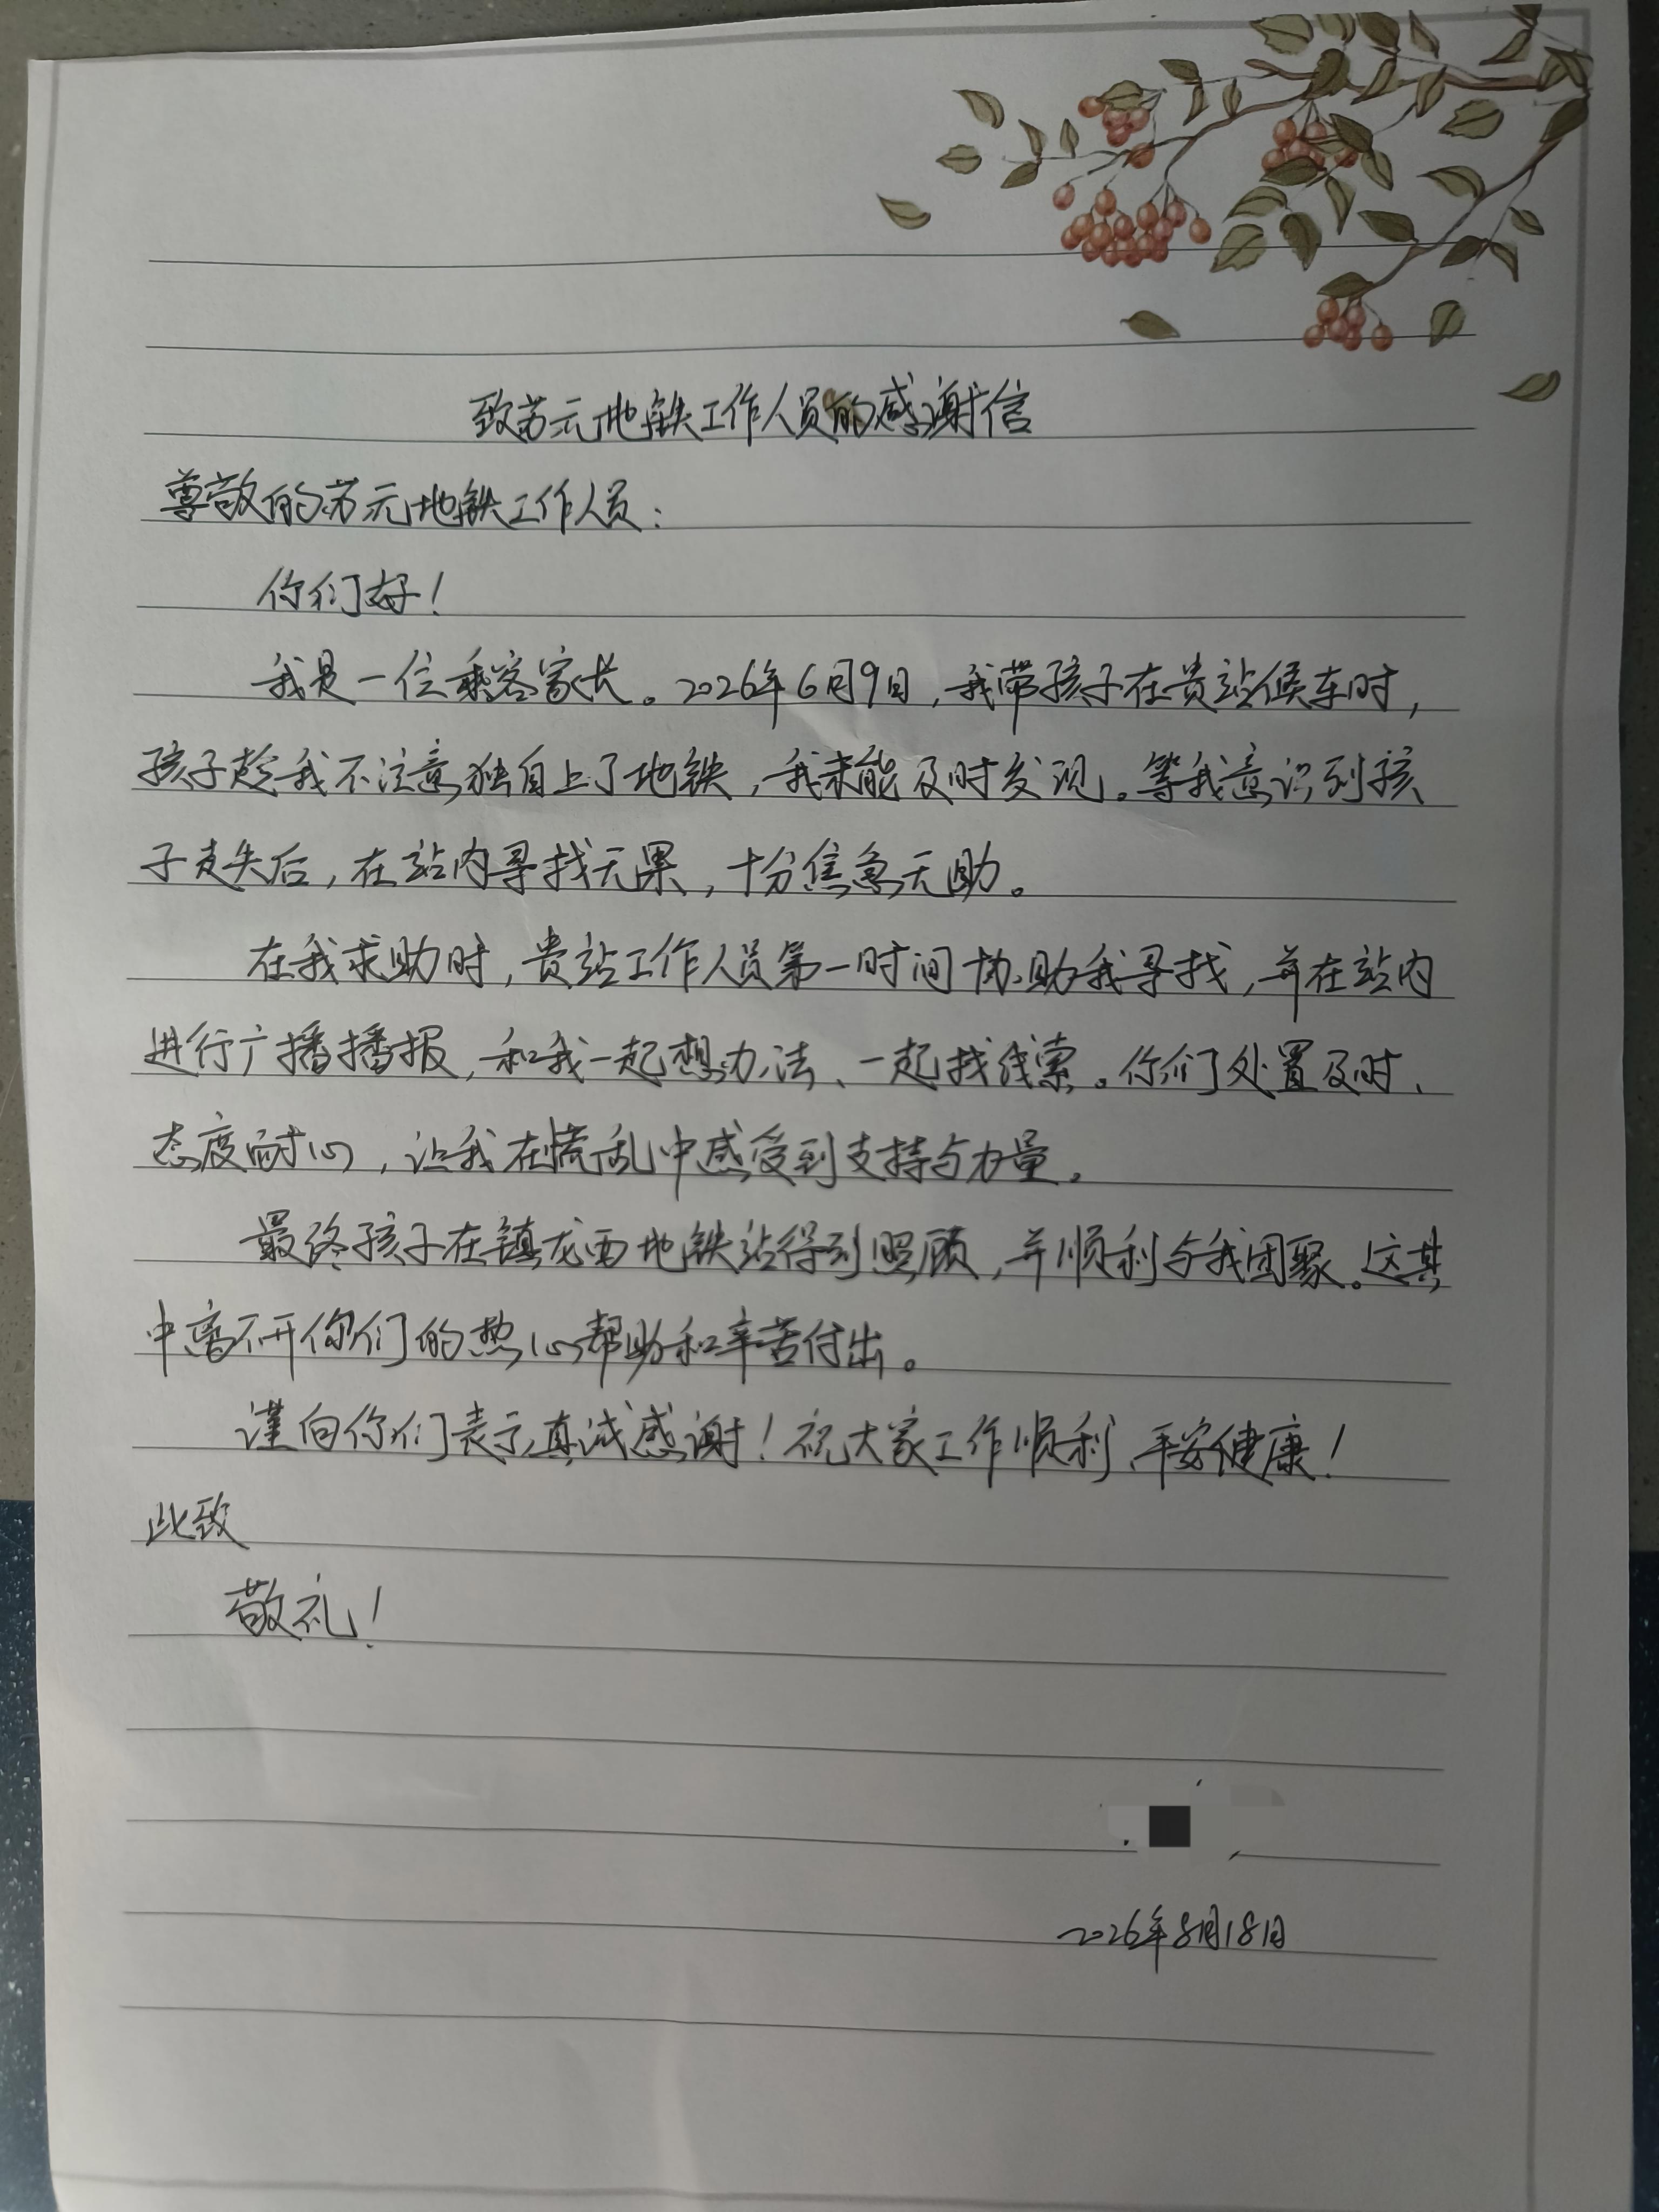 致苏元地铁工作人员的感谢信
尊敬的苏元地铁工作人员：
你们好！
我是一位乘客家长。2026年6月9日，我带孩子在贵站候车时，
孩子趁我不注意独自上了地铁，我未能及时发现。等我意识到孩
子走失后，在站内寻找无果，十分焦急无助。
在我求助时，贵站工作人员第一时间协助我寻找，并在站内
进行广播播报，和我一起想办法、一起找线索。你们处置及时、
态度耐心，让我在慌乱中感受到支持与力量。
最终孩子在镇龙西地铁站得到照顾，并顺利与我团聚。这其
中离不开你们的热心帮助和辛苦付出。
谨向你们表示真诚感谢！祝大家工作顺利、平安健康！
此致
敬礼！
2026年8月18日